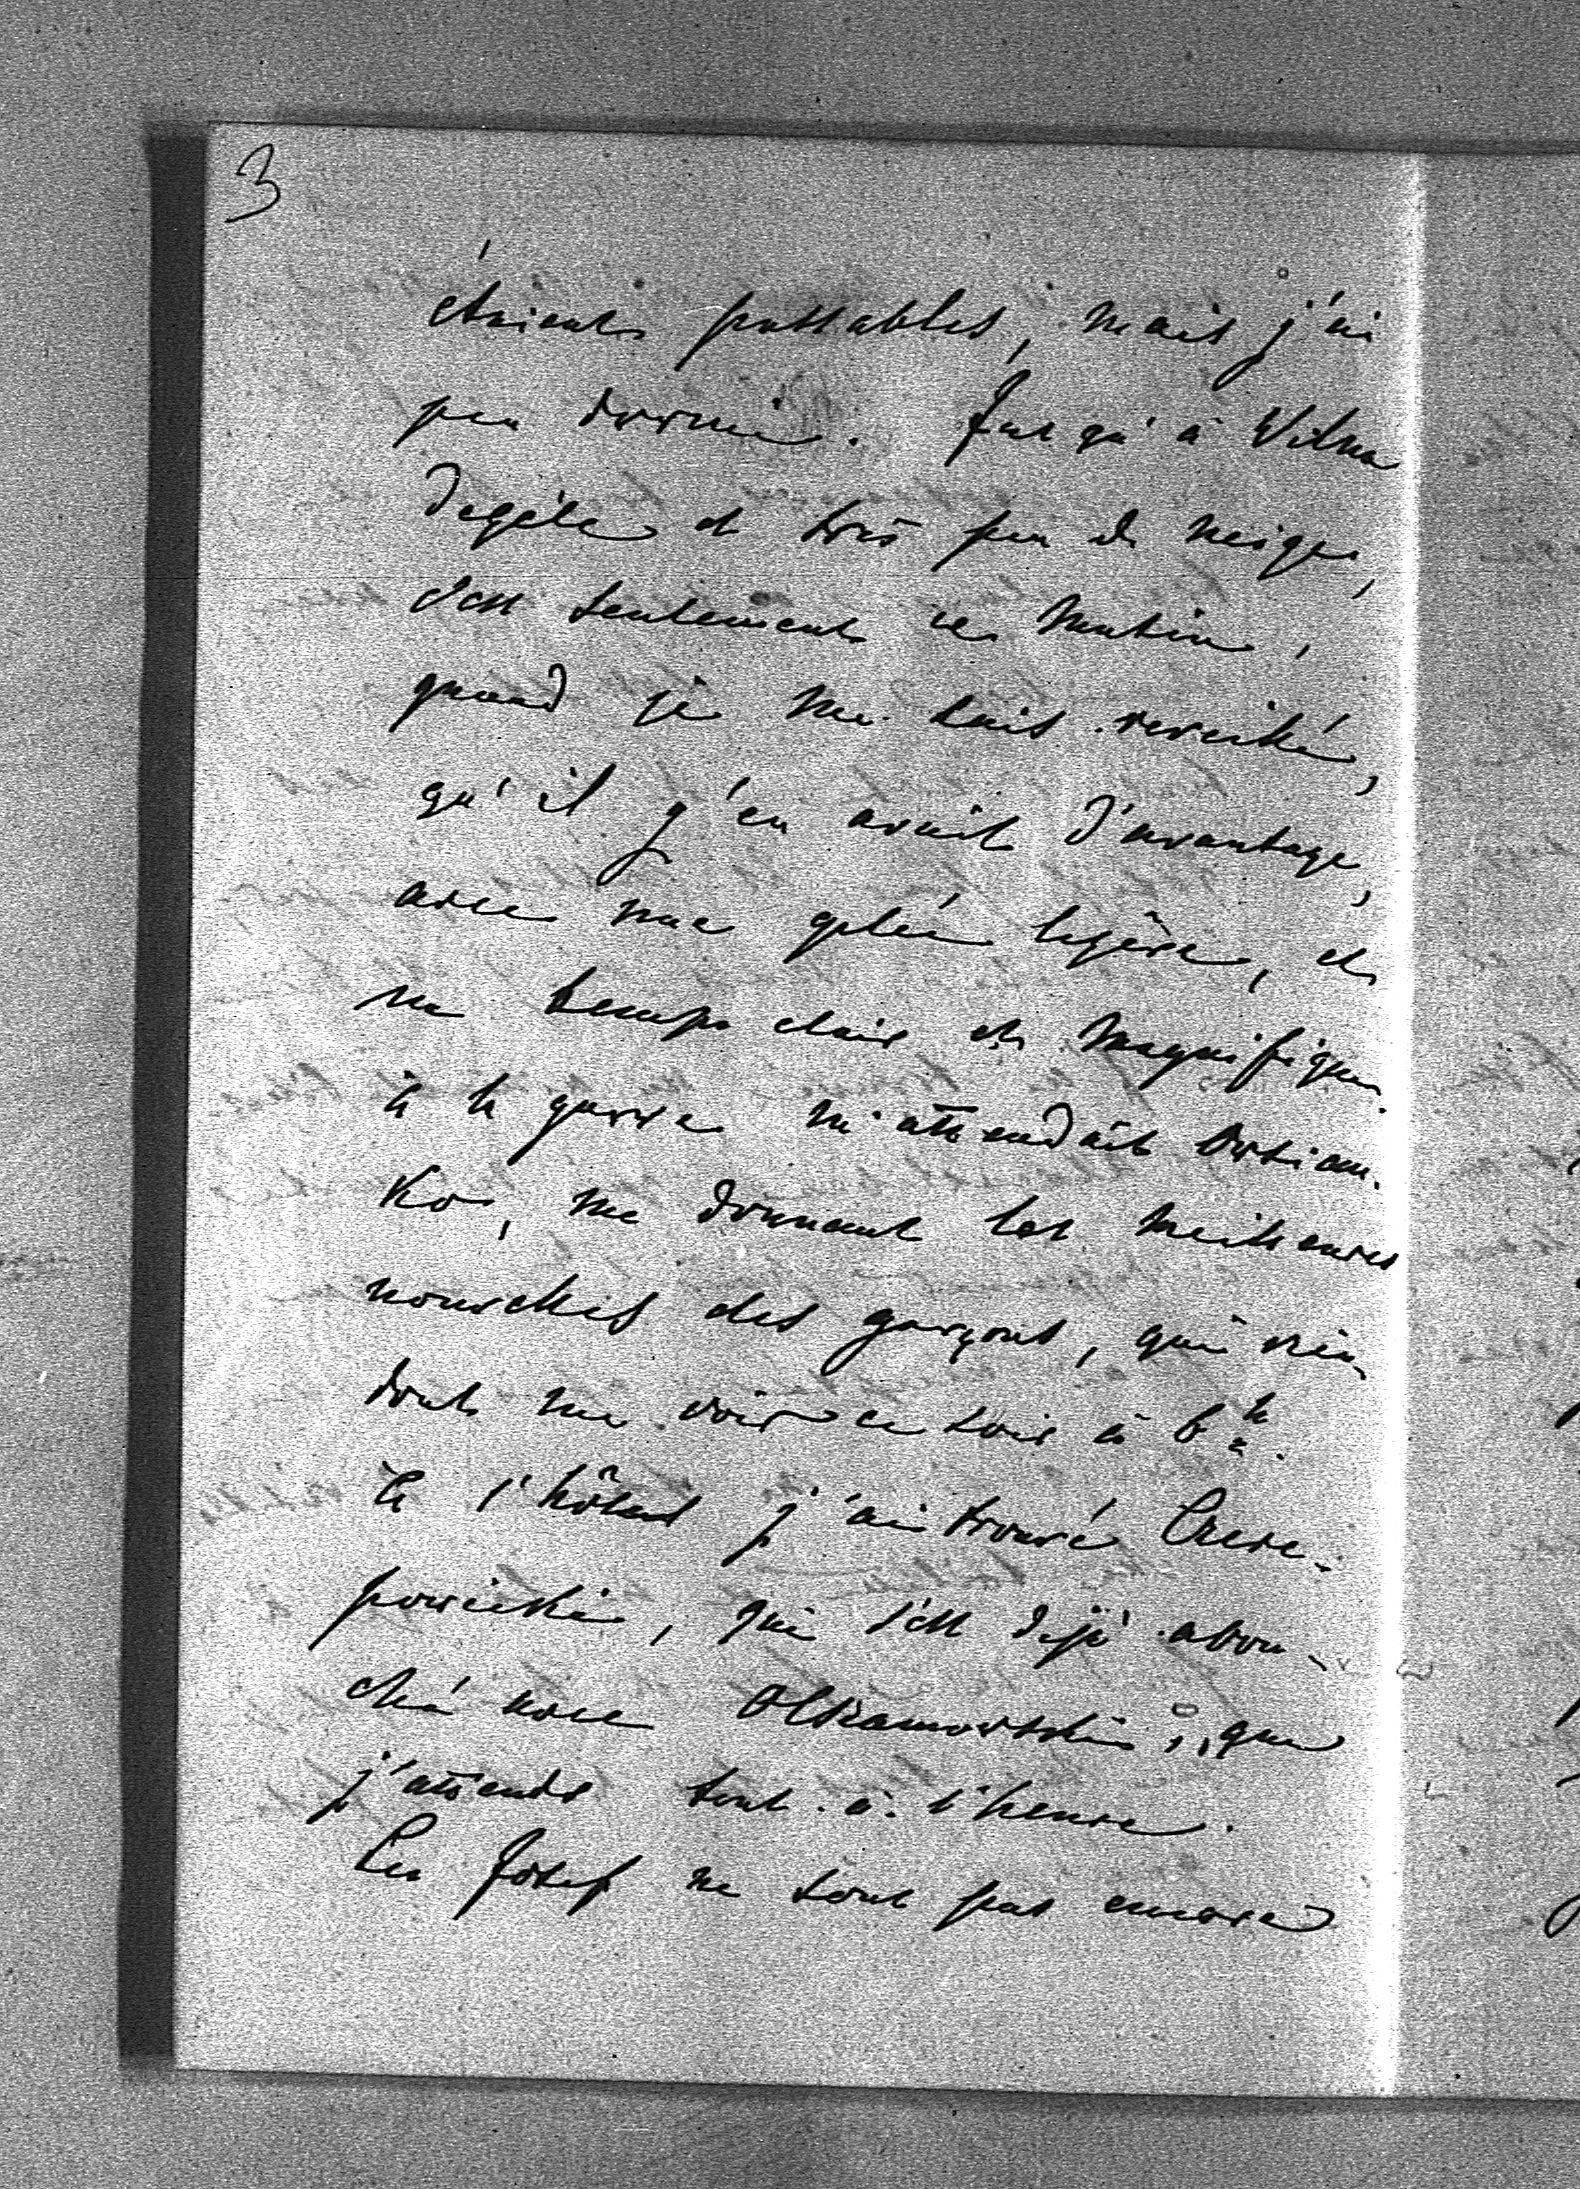 3
étaients passables, mais j'ai
peu dormi. Jusqu'à Vilna
degèle et très peu de neige,
c'est seulement ce matin,
quand je me suis reveillé,
qu'il y'en avait d'avantage,
avec une gelée legère, et
un temps clair et magnifique.
à la garre m'attendait Ostian-
ko, me donnant les meilleures
nouvelles des garçons, qui vien-
dront me voir ce soir à 6 h.
à l'hôtel j'ai trouvé Czere-
powicki, qui s'est dejà abou-
ché avec , que
j'attends tout-à-l'heure.
Les Josef ne sont pas encore